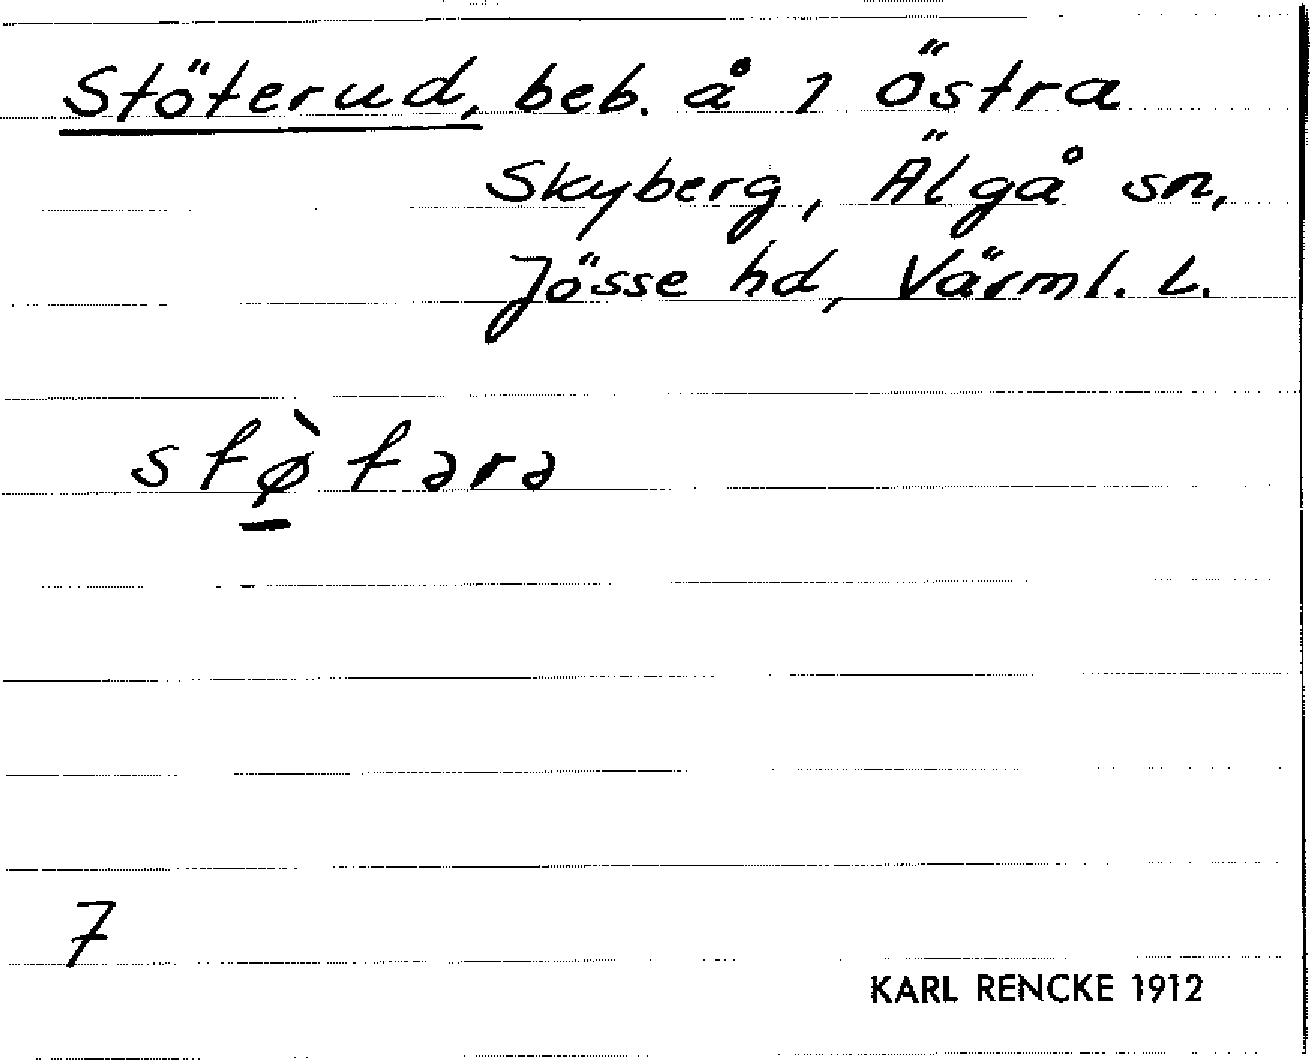 Stöterud, beb. å 1 Östra
Skyberg, Älgå sn,
Jösse hd, Värml. l.
stø̀tərə
7
KARL RENCKE 1912